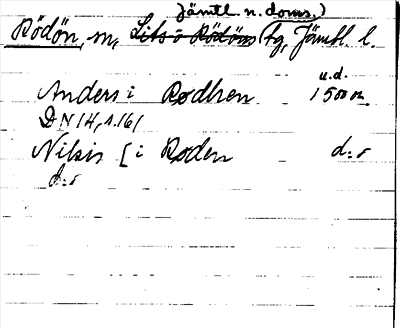 Jämtl. n. doms.)
Rödön, sn, Lits o Rödöns tg, Jämtl. l.
u.d.
Anders i Rodhen 1500 m.
DN 14, s. 161
Nilsis [i Roden d:o
d:o